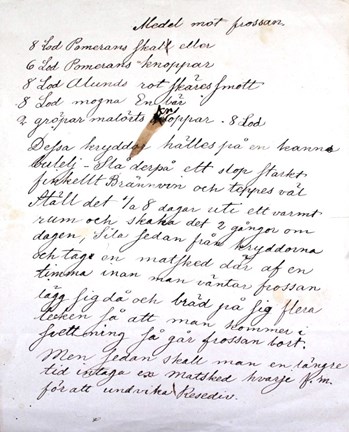 Medel mot frossan
8 Lod Pomerans skall eller
6 Lod Pomerans-knoppar
8 Lod Alunds rot skäres smått
8 Lod mogna En bär
2 gröpar malörts knoppar . 8 Lod
Dessa kryddor hälles på en kanna
butelj - Slå derpå ett stop starkt
finkellt Brännvin och teppes väl
Ställ det 7/a 8 dagar uti ett varmt
rum och skaka det 2 gångor om
dagen, Sila sedan från kryddorna
och tag en matsked där af en
timma inan man väntar frossan
lägg sig då och bräd på sig flera
tecken så att man kommer i
svettning så går frossan bort.
Men sedan skall man en längre
tid intaga en matsked hvarje f.m.
för att undvika Resediv.